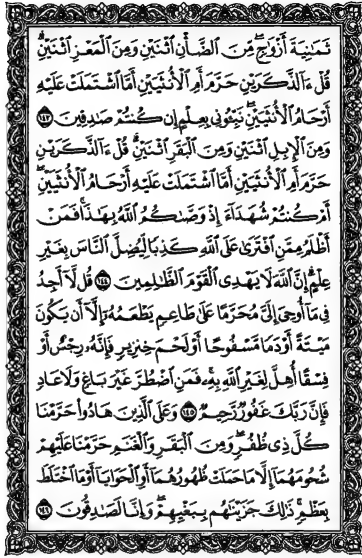 ثَمَٰنِيَةَ أَزۡوَٰجٖۖ مِّنَ ٱلضَّأۡنِ ٱثۡنَيۡنِ وَمِنَ ٱلۡمَعۡزِ ٱثۡنَيۡنِۗ
قُلۡ ءَآلذَّكَرَيۡنِ حَرَّمَ أَمِ ٱلۡأُنثَيَيۡنِ أَمَّا ٱشۡتَمَلَتۡ عَلَيۡهِ
أَرۡحَامُ ٱلۡأُنثَيَيۡنِۖ نَبِّـُٔونِي بِعِلۡمٍ إِن كُنتُمۡ صَٰدِقِينَ ١٤٣
وَمِنَ ٱلۡإِبِلِ ٱثۡنَيۡنِ وَمِنَ ٱلۡبَقَرِ ٱثۡنَيۡنِۗ قُلۡ ءَآلذَّكَرَيۡنِ
حَرَّمَ أَمِ ٱلۡأُنثَيَيۡنِ أَمَّا ٱشۡتَمَلَتۡ عَلَيۡهِ أَرۡحَامُ ٱلۡأُنثَيَيۡنِۖ
أَمۡ كُنتُمۡ شُهَدَآءَ إِذۡ وَصَّىٰكُمُ ٱللَّهُ بِهَٰذَاۚ فَمَنۡ
أَظۡلَمُ مِمَّنِ ٱفۡتَرَىٰ عَلَى ٱللَّهِ كَذِبٗا لِّيُضِلَّ ٱلنَّاسَ بِغَيۡرِ
عِلۡمٍۚ إِنَّ ٱللَّهَ لَا يَهۡدِي ٱلۡقَوۡمَ ٱلظَّٰلِمِينَ ١٤٤ قُل لَّآ أَجِدُ
فِي مَآ أُوحِيَ إِلَيَّ مُحَرَّمًا عَلَىٰ طَاعِمٖ يَطۡعَمُهُۥٓ إِلَّآ أَن يَكُونَ
مَيۡتَةً أَوۡ دَمٗا مَّسۡفُوحًا أَوۡ لَحۡمَ خِنزِيرٖ فَإِنَّهُۥ رِجۡسٌ أَوۡ
فِسۡقًا أُهِلَّ لِغَيۡرِ ٱللَّهِ بِهِۦۚ فَمَنِ ٱضۡطُرَّ غَيۡرَ بَاغٖ وَلَا عَادٖ
فَإِنَّ رَبَّكَ غَفُورٞ رَّحِيمٞ ١٤٥ وَعَلَى ٱلَّذِينَ هَادُواْ حَرَّمۡنَا
كُلَّ ذِي ظُفُرٖۖ وَمِنَ ٱلۡبَقَرِ وَٱلۡغَنَمِ حَرَّمۡنَا عَلَيۡهِمۡ
شُحُومَهُمَآ إِلَّا مَا حَمَلَتۡ ظُهُورُهُمَآ أَوِ ٱلۡحَوَايَآ أَوۡ مَا ٱخۡتَلَطَ
بِعَظۡمٖۚ ذَٰلِكَ جَزَيۡنَٰهُم بِبَغۡيِهِمۡۖ وَإِنَّا لَصَٰدِقُونَ ١٤٦